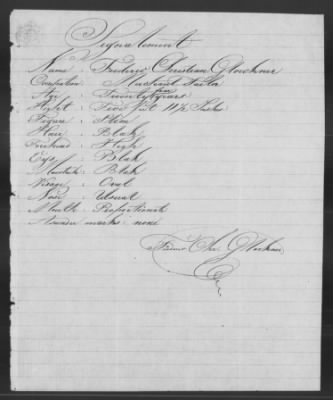 Signalement
Name: Frederic Christian Glockner
Occupation: Merchant Tailor
Age: Twenty years
Height: Five Feet 11½ Inches
Figure: Slim
Hair: Black
Forehead: High
Eyes: Black
Mustache: Black
Visage: Oval
Nose: Usual
Mouth: Proportionate
Peculiar marks: none